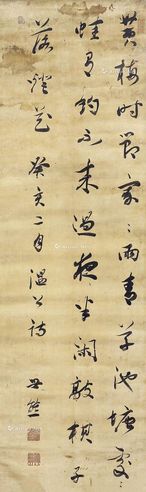 黃梅時節家〻雨青草池塘處〻
蛙有約不來過夜半閑敲棋子
落燈花 癸亥二月 溫公詩